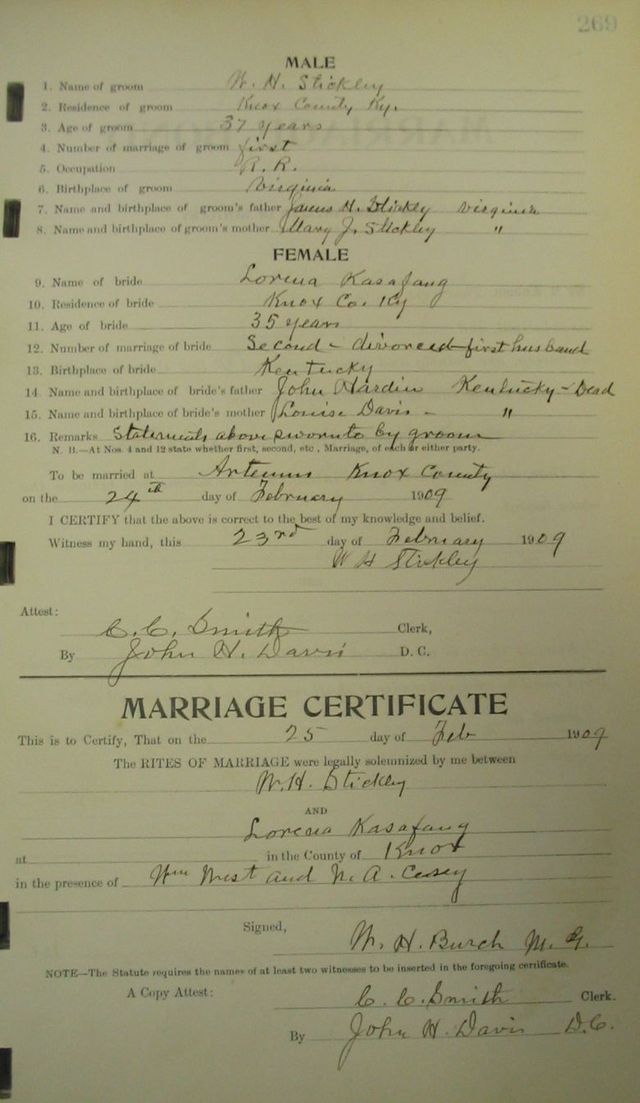 269
MALE
1. Name of groom W. H. Stickley
2. Residence of groom Knox County Ky.
3. Age of groom 37 years
4. Number of marriage of groom first
5. Occupation R. R.
6. Birthplace of groom Virginia
7. Name and birthplace of groom's father James H. Stickley Virginia
8. Name and birthplace of groom's mother Mary J. Stickley "
FEMALE
9. Name of bride Lorena Kasafang
10. Residence of bride Knox Co. Ky
11. Age of bride 35 years
12. Number of marriage of bride Second - divorced first husband
13. Birthplace of bride Kentucky
14 Name and birthplace of bride's father John Hardin Kentucky - Dead
15. Name and birthplace of bride's mother Louise Davis - "
16. Remarks Statements above sworn to by groom
N. B.—At Nos. 4 and 12 state whether first, second, etc., Marriage, of each or either party.
To be married at Artemus Knox County
on the 24th day of February 1909
I CERTIFY that the above is correct to the best of my knowledge and belief.
Witness my hand, this 23rd day of February 1909
W H Stickley
Attest:
C. C. Smith Clerk,
By John H. Davis D. C.
MARRIAGE CERTIFICATE
This is to Certify, That on the 25 day of Feb 1909
The RITES OF MARRIAGE were legally solemnized by me between
W. H. Stickley
AND
Lorena Kasafang
at in the County of Knox
in the presence of Wm West and A.
Signed,
W. H. Burch M. G.
NOTE—The Statute requires the names of at least two witnesses to be inserted in the foregoing certificate.
A Copy Attest: C. C. Smith Clerk.
By John H. Davis D. C.